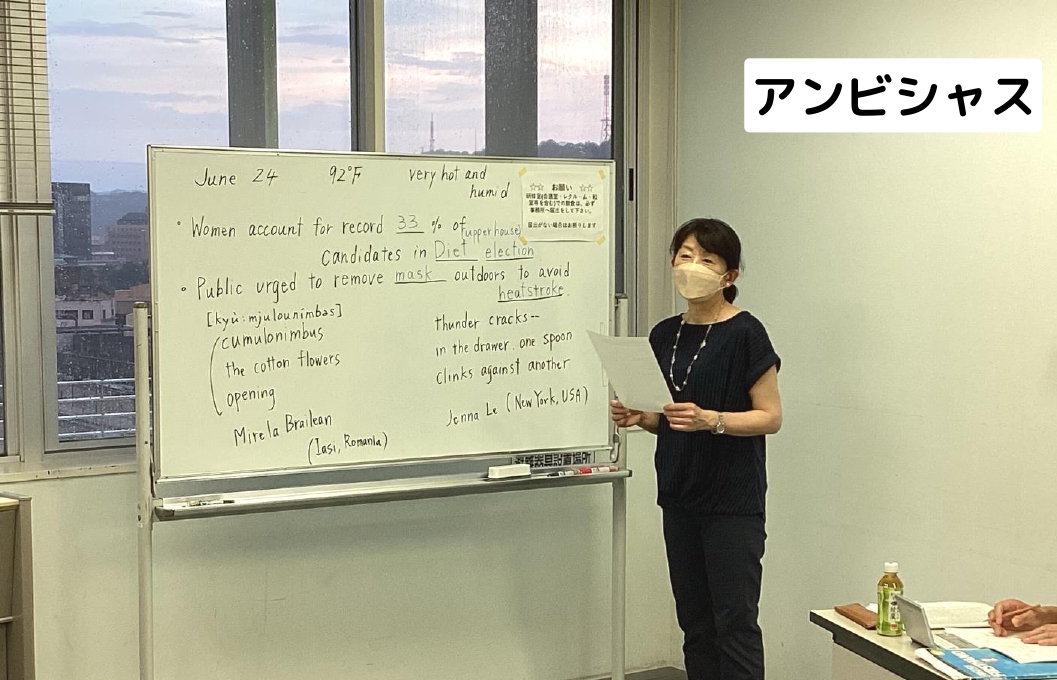 アンビシャス
June 24 92°F very hot and
humid
☆☆ お願い ☆☆
事務所へ届出をして下さい。
届出がない場合はお断りします
• Women account for record 33 % of upper house
candidates in Diet election
• Public urged to remove mask outdoors to avoid
heatstroke.
[kyù:mjulounimbəs]
cumulonimbus
the cotton flowers
opening
Mirela Brailean
(Iasi, Romania)
thunder cracks—
in the drawer, one spoon
clinks against another
Jenna Le (New York, USA)